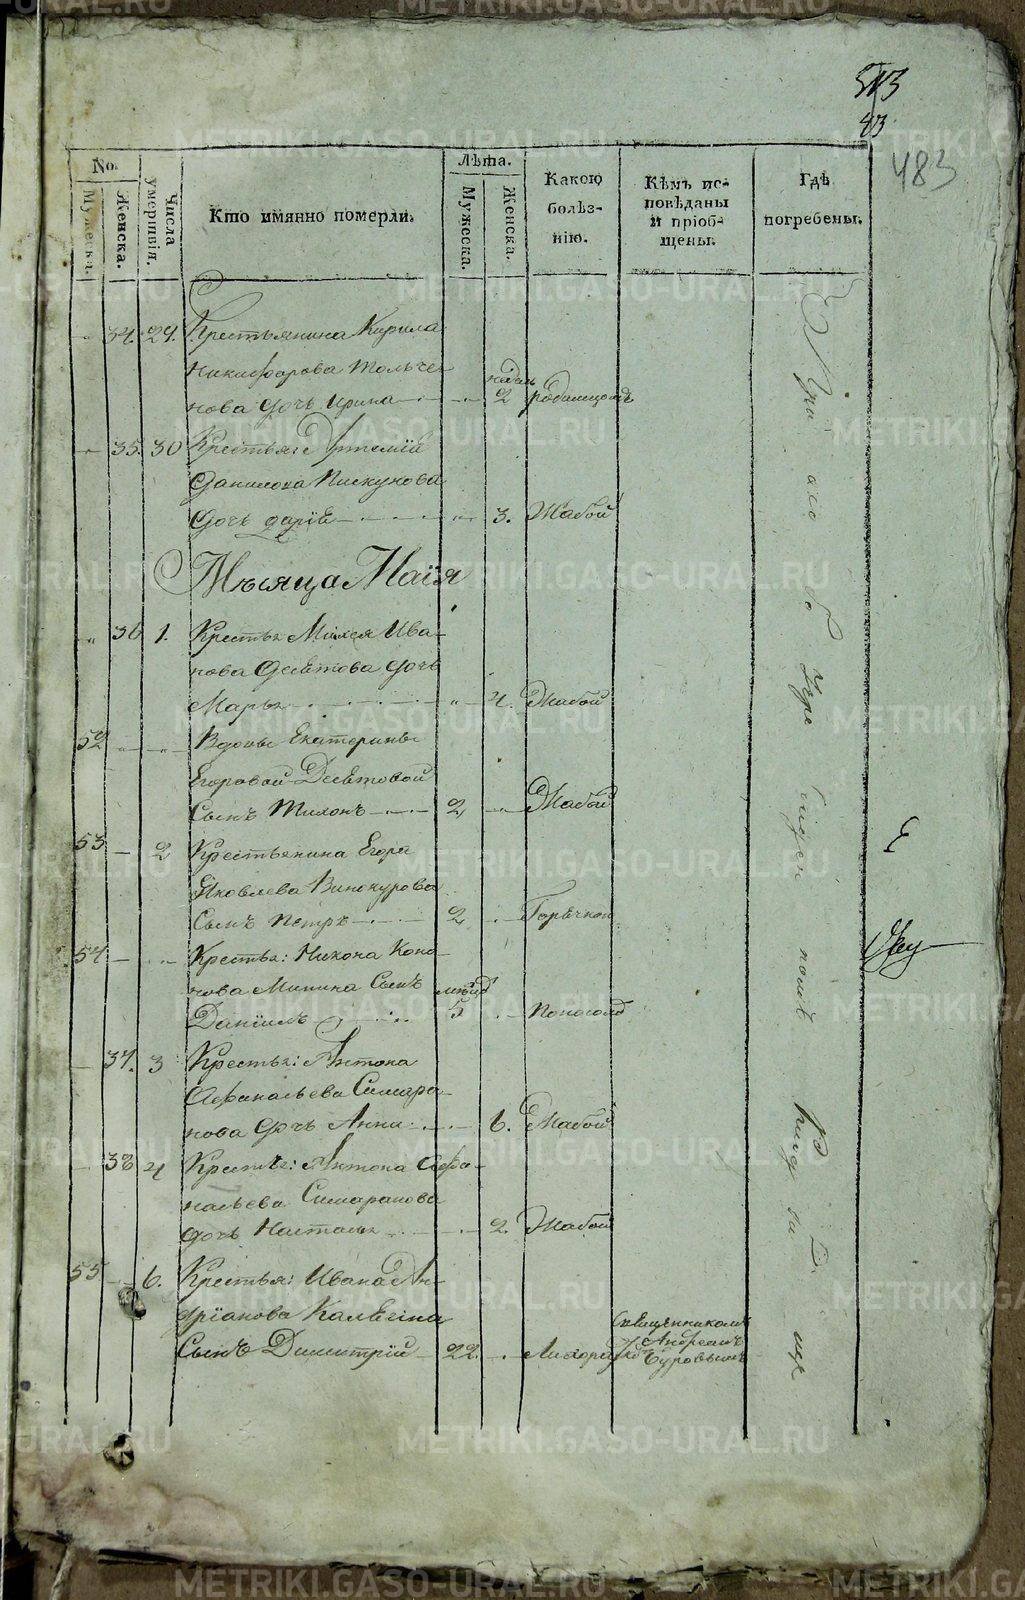 513
83
483
No.
Мужеска.
Женска.
Числа умертвія.
Кто имянно померли.
Лѣта.
Мужеска.
Женска.
Какою болѣз-
нію.
Кѣмъ ис-
повѣданы
и пріоб-
щены.
Гдѣ
погребены.
34. 29. Крестьянина Кирила
Никифорова Толъче-
нова дочь Ирина недѣл 2 родимцомъ
35. 30 Крестья: Артемія
Данилова Пискунова
дочь дарія 3. Жабой
Мѣсяца Маія
36 1. Крестья Мо Ива-
нова Девѣтова дочь
Марья 4. Жабой
52 Вдовы Екатерины
Егоровой Девѣтовой
Сынъ Тихонъ 2 Жабой
53 2 Крестьянина Егора
Яковлева Винокурова
Сынъ Петръ 2 Горячкой
54 Крестья: Никона Коно-
нова Минина Сынъ
Даніилъ 5 Поносомъ
37. 3 Крестья: Антона
Афанасьева Симаро-
нова дочь Анна 6. Жабой
38 4 Крестья: Антона Афо-
насьева Симаранова
дочь Настасья 2 Жабой
55 6. Крестья: Ивана Ан-
дріанова Калѣгина
Сынъ Димитрій 22. Лихорадкой Священникомъ
Андреемъ
Буровымъ
При
METRIKI.GASO-URAL.RU